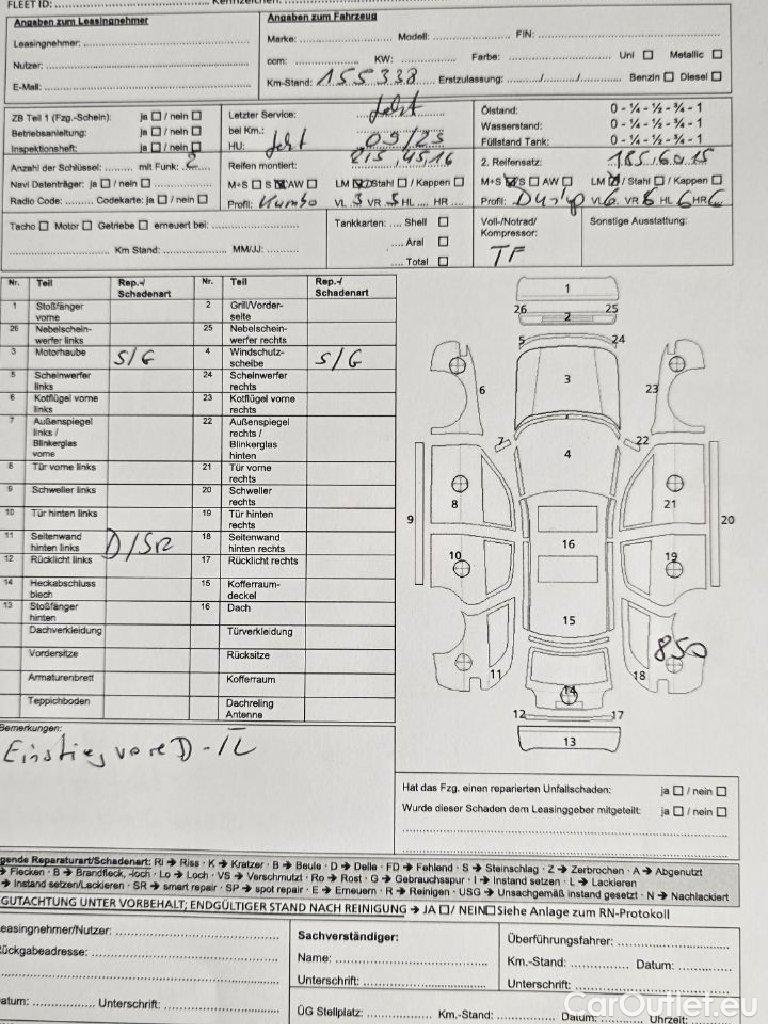 FLEET ID: Kennzeichen:
Angaben zum Leasingnehmer
Leasingnehmer:
Nutzer:
E-Mail:
Angaben zum Fahrzeug
Marke: Modell: FIN:
ccm: KW: Farbe: Uni Metallic
Km-Stand: 155338 Erstzulassung: / / Benzin Diesel
ZB Teil 1 (Fzg.-Schein): ja / nein
Betriebsanleitung: ja / nein
Inspektionsheft: ja / nein
Anzahl der Schlüssel: mit Funk: 2
Navi Datenträger: ja / nein
Radio Code: Codekarte: ja / nein
Letzter Service: fehlt
bei Km.:
HU: fehlt 09/23
Reifen montiert: 215, 45, 16
M+S S AW LM / Stahl / Kappen
Profil: Kumho VL 3 VR 3 HL HR
Ölstand: 0 - ¼ - ½ - ¾ - 1
Wasserstand: 0 - ¼ - ½ - ¾ - 1
Füllstand Tank: 0 - ¼ - ½ - ¾ - 1
2. Reifensatz: 185, 60, 15
M+S S AW LM / Stahl / Kappen
Profil: Dunlop VL 6 VR 6 HL 6 HR 6
Tacho Motor Getriebe erneuert bei:
Km Stand: MM/JJ:
Tankkarten: Shell
Aral
Total
Voll-/Notrad/
Kompressor:
TF
Sonstige Ausstattung:
Nr. Teil Rep.-/ Schadenart Nr. Teil Rep.-/ Schadenart
1 Stoßfänger vorne 2 Grill/Vorder-seite
26 Nebelschein-werfer links 25 Nebelschein-werfer rechts
3 Motorhaube S/G 4 Windschutz-scheibe S/G
5 Scheinwerfer links 24 Scheinwerfer rechts
6 Kotflügel vorne links 23 Kotflügel vorne rechts
7 Außenspiegel links / Blinkerglas vorne 22 Außenspiegel rechts / Blinkerglas hinten
8 Tür vorne links 21 Tür vorne rechts
9 Schweller links 20 Schweller rechts
10 Tür hinten links 19 Tür hinten rechts
11 Seitenwand hinten links D/SR 18 Seitenwand hinten rechts
12 Rücklicht links 17 Rücklicht rechts
14 Heckabschluss blech 15 Kofferraum-deckel
13 Stoßfänger hinten 16 Dach
Dachverkleidung Türverkleidung
Vordersitze Rücksitze
Armaturenbrett Kofferraum
Teppichboden Dachreling Antenne
1
26 25
2
5 24
3
6 23
7 22
4
8 21
9 20
10 16 19
15
11 18
850
14
12 17
13
Bemerkungen:
Hat das Fzg. einen reparierten Unfallschaden: ja / nein
Wurde dieser Schaden dem Leasinggeber mitgeteilt: ja / nein
gende Reparaturart/Schadenart: Ri → Riss · K → Kratzer · B → Beule · D → Delle · FD → Fehlend · S → Steinschlag · Z → Zerbrochen · A → Abgenutzt
→ Flecken · B → Brandfleck, -loch · Lo → Loch · VS → Verschmutzt · Ro → Rost · G → Gebrauchsspur · I → Instand setzen · L → Lackieren
→ Instand setzen/Lackieren · SR → smart repair · SP → spot repair · E → Erneuern · R → Reinigen · USG → Unsachgemäß instand gesetzt · N → Nachlackiert
GUTACHTUNG UNTER VORBEHALT; ENDGÜLTIGER STAND NACH REINIGUNG → JA / NEIN Siehe Anlage zum RN-Protokoll
easingnehmer/Nutzer:
ückgabeadresse:
atum: Unterschrift:
Sachverständiger:
Name:
Unterschrift:
Überführungsfahrer:
Km.-Stand: Datum:
Unterschrift:
ÜG Stellplatz: Km.-Stand: Datum: Uhrzeit:
CarOutlet.eu